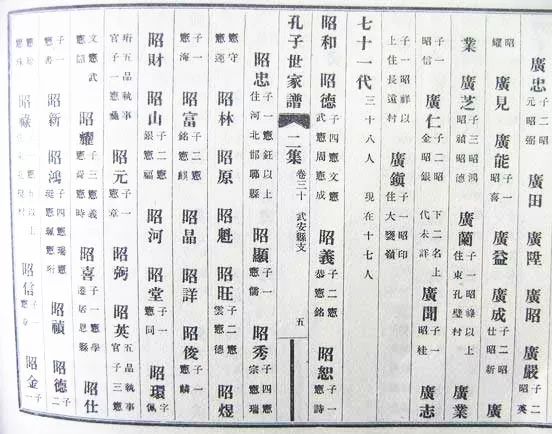 廣忠子二昭元昭弼 廣田 廣陞 廣昭 廣嚴子二昭英
昭耀 廣見 廣能子一昭喜 廣益 廣成子二昭仕昭新 廣
業 廣芝子三昭鴻昭禎昭德 廣蘭子一昭祿以上住東孔壁村 廣業
子一昭信 廣仁子二昭金昭銀 下二名上代未詳 廣聞子一昭桂 廣志
子一昭祥以上住長遠村 廣鎮子一昭印住大甕嶺
七十一代 三十八人 現在十七人
昭和 昭德子四憲文憲武憲周憲成 昭義子二憲恭憲銘 昭恕子一憲詩
孔子世家譜 二集 卷三十 武安縣支 五
昭忠子一憲鈺以上住河北邯鄲縣 昭顯子一憲儒 昭秀子二憲宗憲瑞
憲守憲蓮 昭林 昭原 昭魁 昭旺子二憲雲憲德 昭煜
子一憲海 昭富子二憲銘憲麒 昭晶 昭詳 昭俊子一憲麟
昭財 昭山子二憲銀憲福 昭河 昭堂子一憲同 昭環字佩
珩五品執事官子一憲 昭元子一憲章 昭弼 昭英五品執事官子三憲
文憲武憲 昭耀子三憲義憲舜憲時 昭喜子一憲學遷居恩縣 昭仕
子一憲書 昭新 昭鴻子四憲瑞憲珽憲珮憲珩 昭禎 昭德子二
憲珍憲珠 昭祿 以上 昭信子一憲 昭金子一